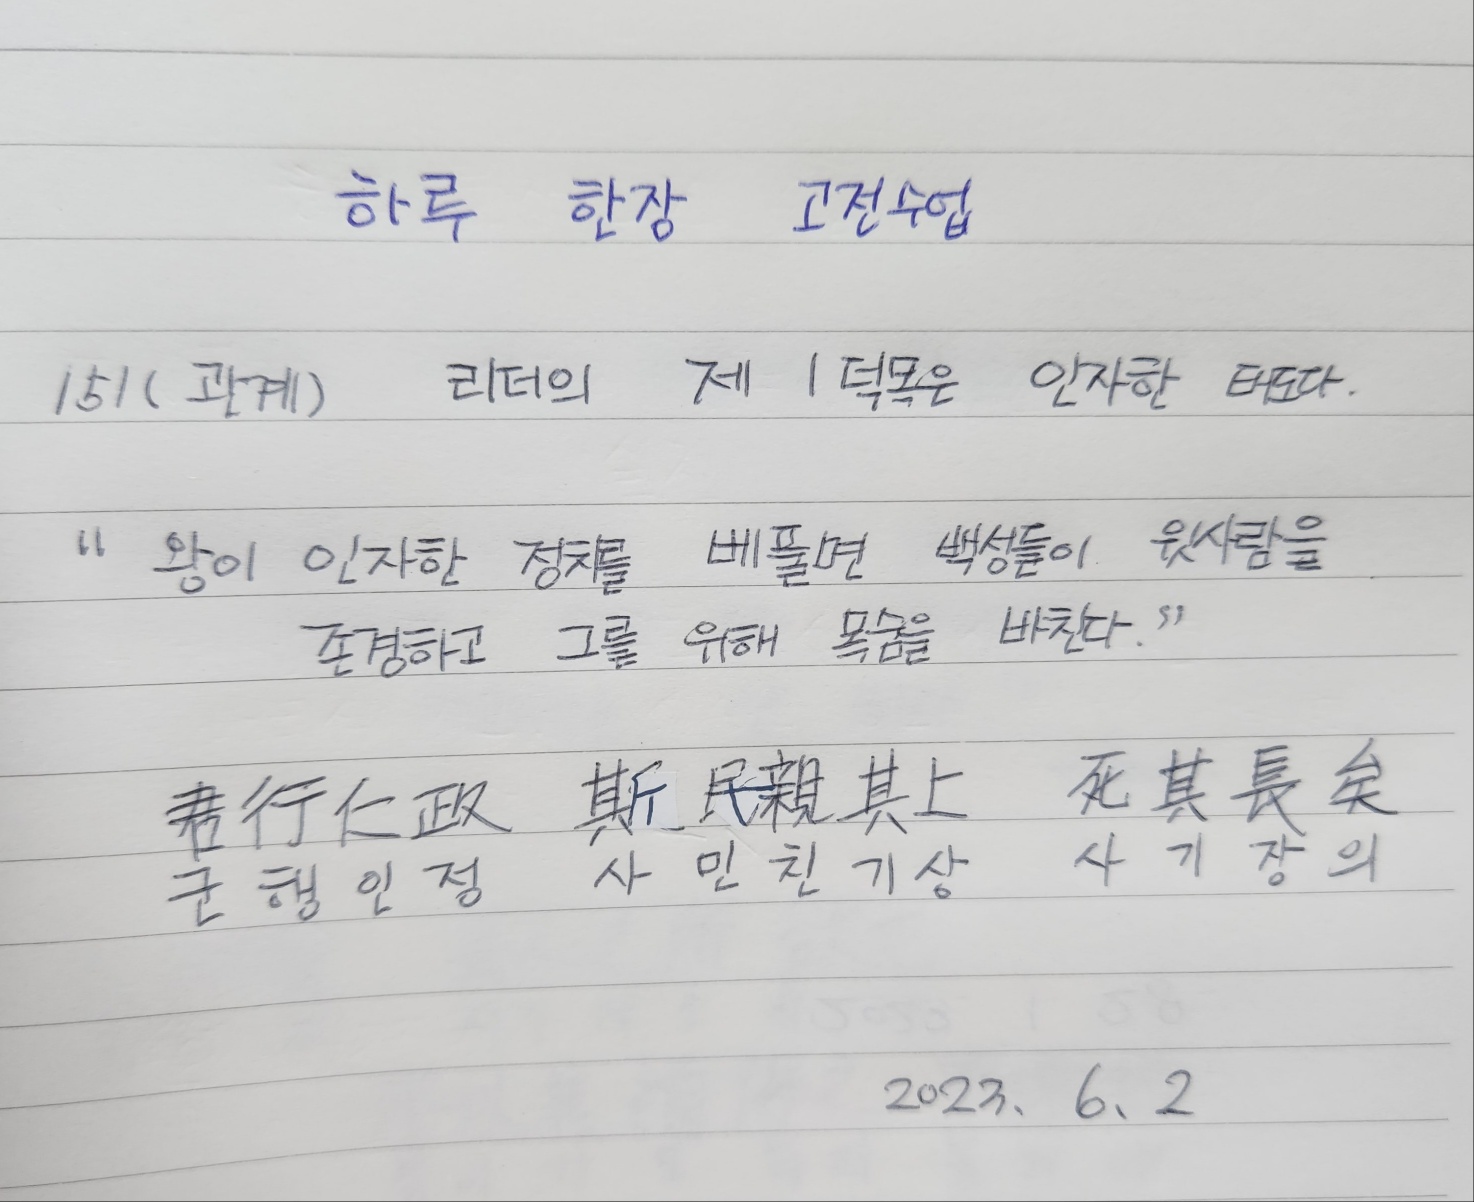 하루 한장 고전수업
151(관계) 리더의 제 1덕목은 인자한 태도다.
"왕이 인자한 정치를 베풀면 백성들이 윗사람을
존경하고 그를 위해 목숨을 바친다."
君行仁政 斯民親其上 死其長矣
군행인정 사민친기상 사기장의
2023. 6. 2